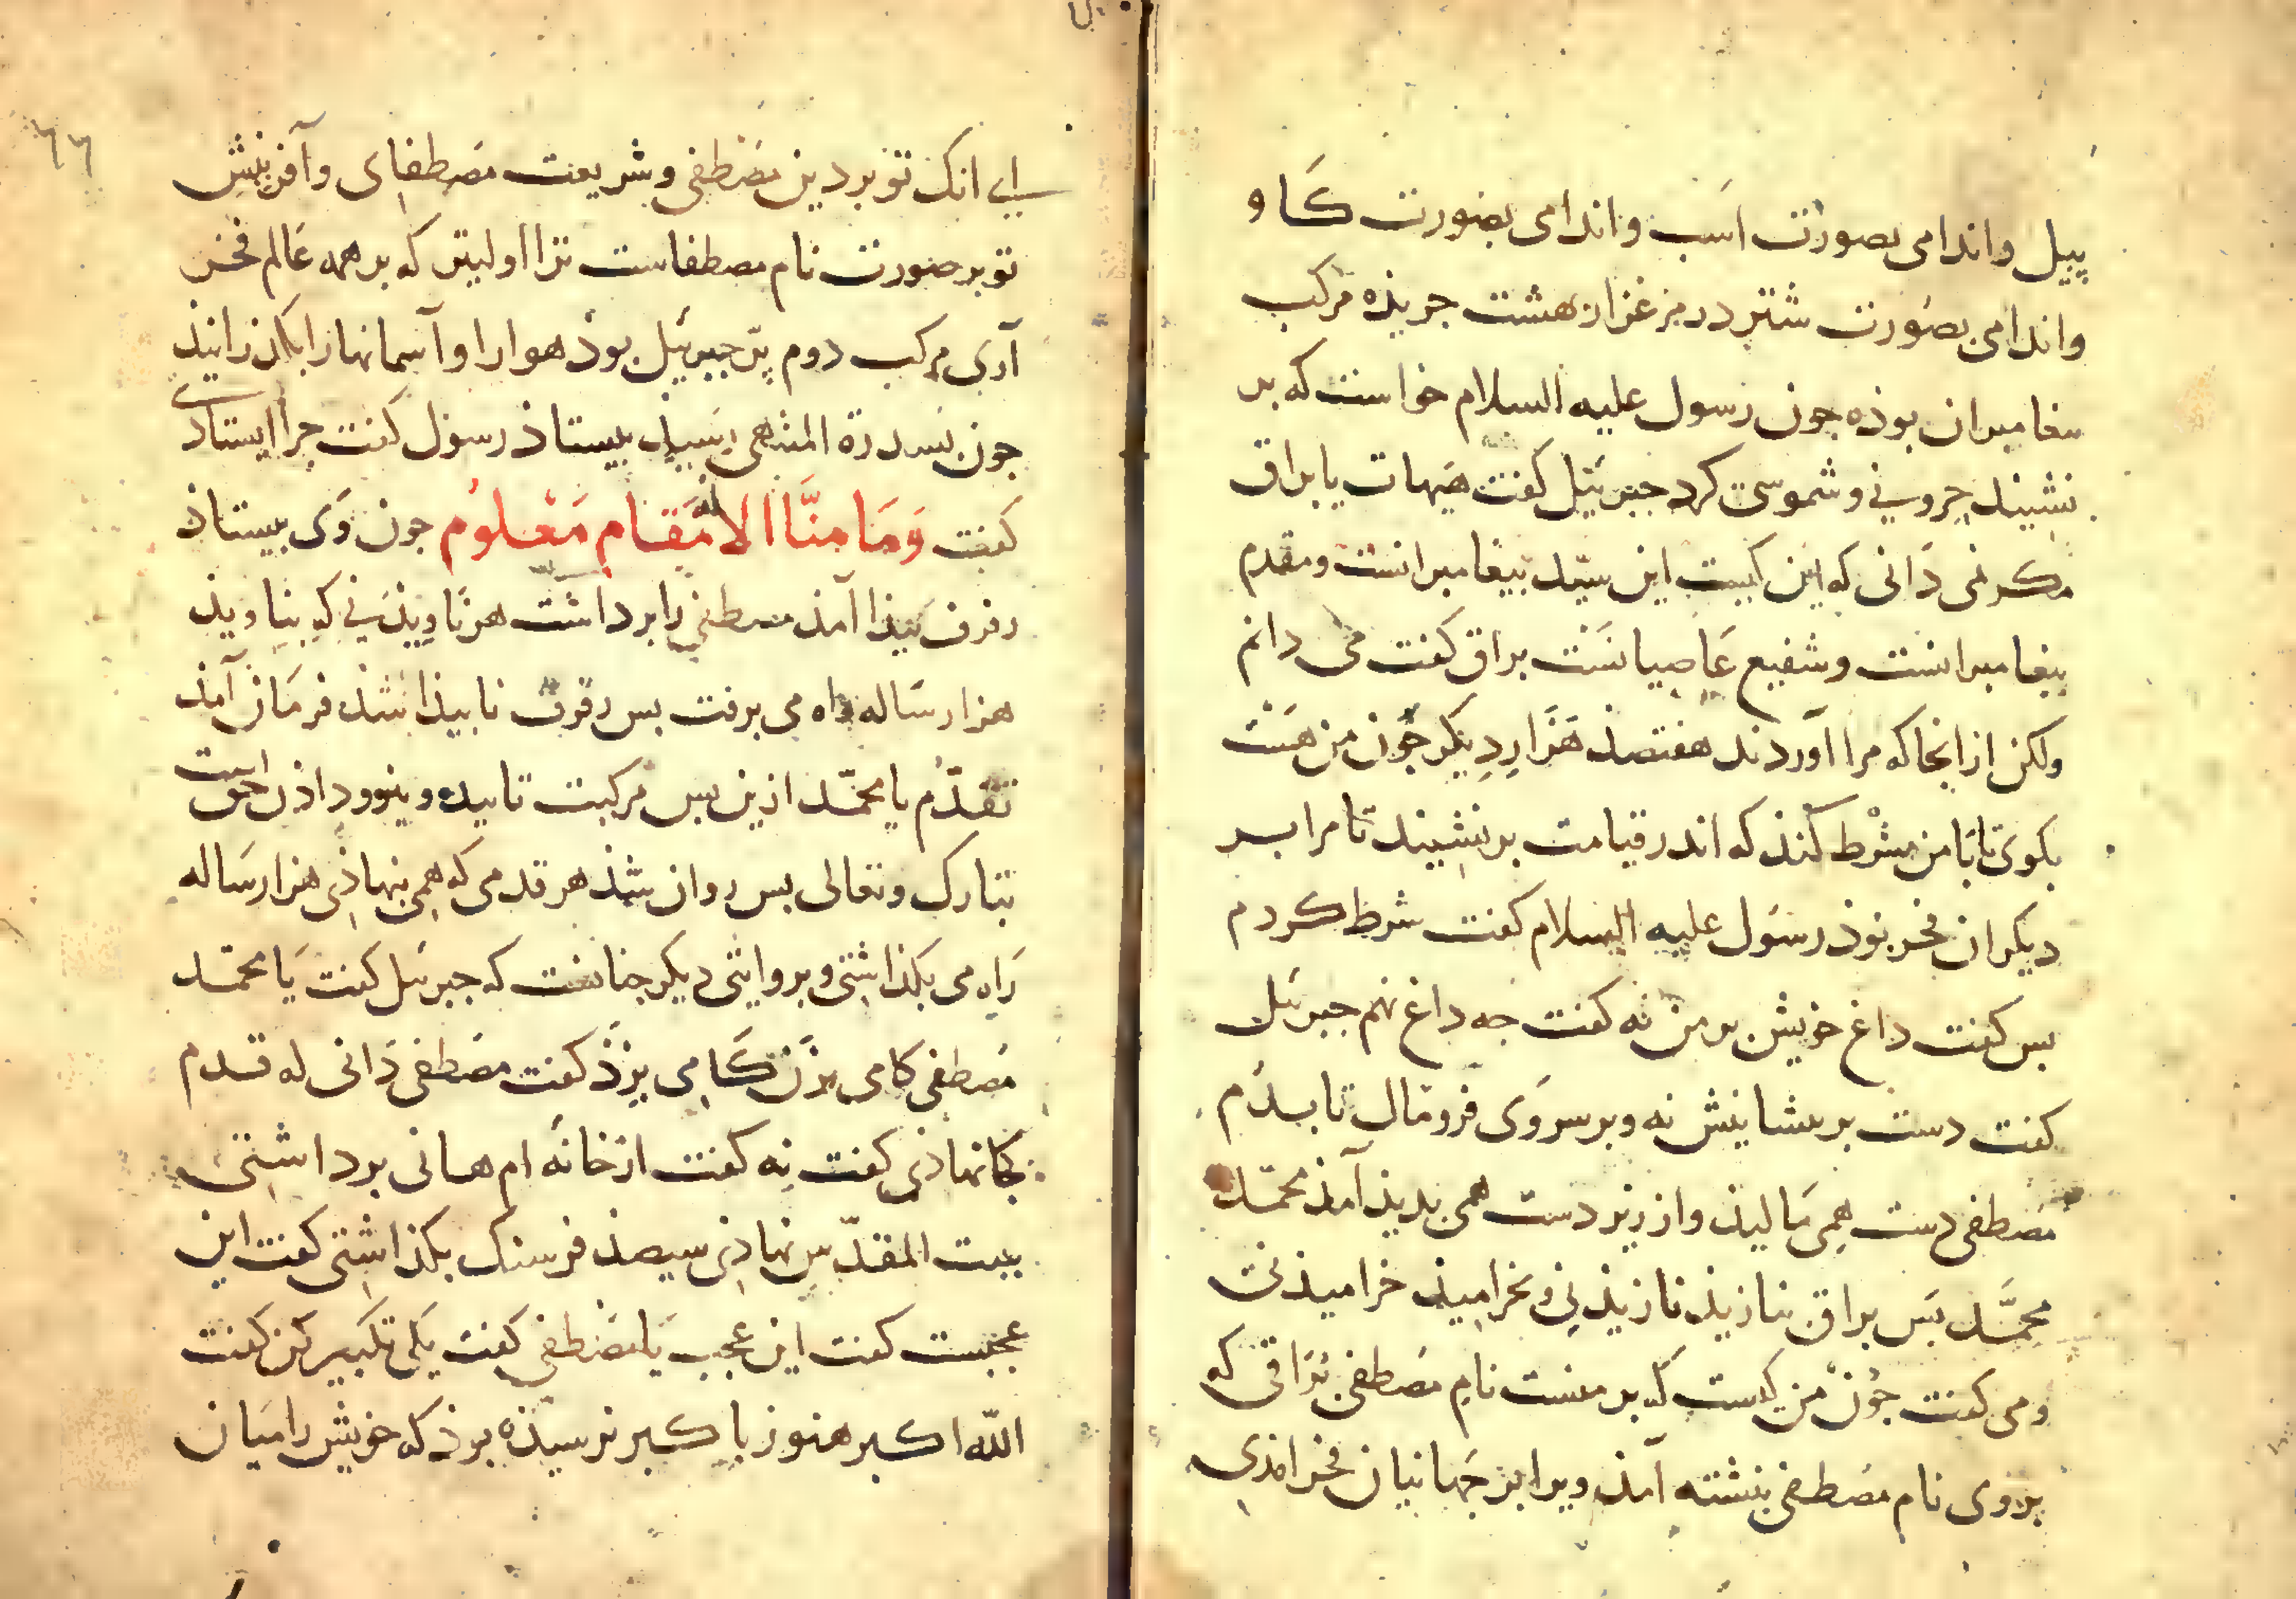 پیل واندامی بصورت اسب واندامی بصورت کاو
واندامی بصورت شتر در مرغزار بهشت جریذه مرکب
بیغامبران بوذه جون رسول علیه السلام خواست که بر
نشیند حرونی وشموسی کرد جبرئیل کفت هیهات یا براق
مکر نمی دانی که این کیست این سید بیغامبرانست ومقدم
بیغامبرانست وشفیع عاصیانست براق کفت می دانم
ولکن از انجا که مرا آوردند هفتصذ هزار دیکر جون من هست
بکوی تا با من شرط کنذ که اندر قیامت بر من نشیند تا مرا بر
دیکران فخر بوذ رسول علیه السلام کفت شرط کردم
بس کفت داغ خویش بر من نه کفت جه داغ نهم جبرئیل
کفت دست بر بیشانیش نه وبر سر وی فرومال تا بدم
مصطفی دست همی مالیذ واز زیر دست همی بدیذ آمذ محمد
محمد بس براق بنازیذ نازیذنی وبخرامیذ خرامیذنی
ومی کفت جون من کیست که بر منست نام مصطفی براقی که
بر وی نام مصطفی نبشته آمذ ویرا بر جهانیان فخر امذی
ای انک تو بر دین مصطفی وشریعت مصطفای وآفرینش
تو بر صورت نام مصطفاست ترا اولیتر که بر همه عالم فخر
آری مرکب دوم پر جبرئیل بوذ هوا را وآسمانها را بکذرانیذ
جون بسدرة المنتهی رسیذ بیستاذ رسول کفت جرا ایستادی
کفت وَمَا مِنَّا الا له مَقَام مَعْلوُم جون وی بیستاذ
رفرف بیذا آمذ مصطفی را برداشت هر ناویذنی که بناویذ
هزار ساله راه می برفت بس رفرف نابیذا شذ فرمان آمذ
تقدم یا محمد ازین بس مرکبت تاییده ونیوو داذن حق است
تبارک وتعالی بس روان شذ هر قدمی که همی نهاذی هزار ساله
راه می بکذاشتی وبروایتی دیکر جنانست که جبرئیل کفت یا محمد
مصطفی کامی بزن کامی بزذ کفت مصطفی دانی که قدم
کجا نهاذی کفت نه کفت از خانه ام هانی برداشتی
ببیت المقدس نهاذی سیصذ فرسنک بکذاشتی کفت این
عجبست کفت این عجب یا مصطفی کفت بلی تکبیر کن کفت
الله اکبر هنوز با کبر نرسیذه بوذ که خویش را میان
٦٦